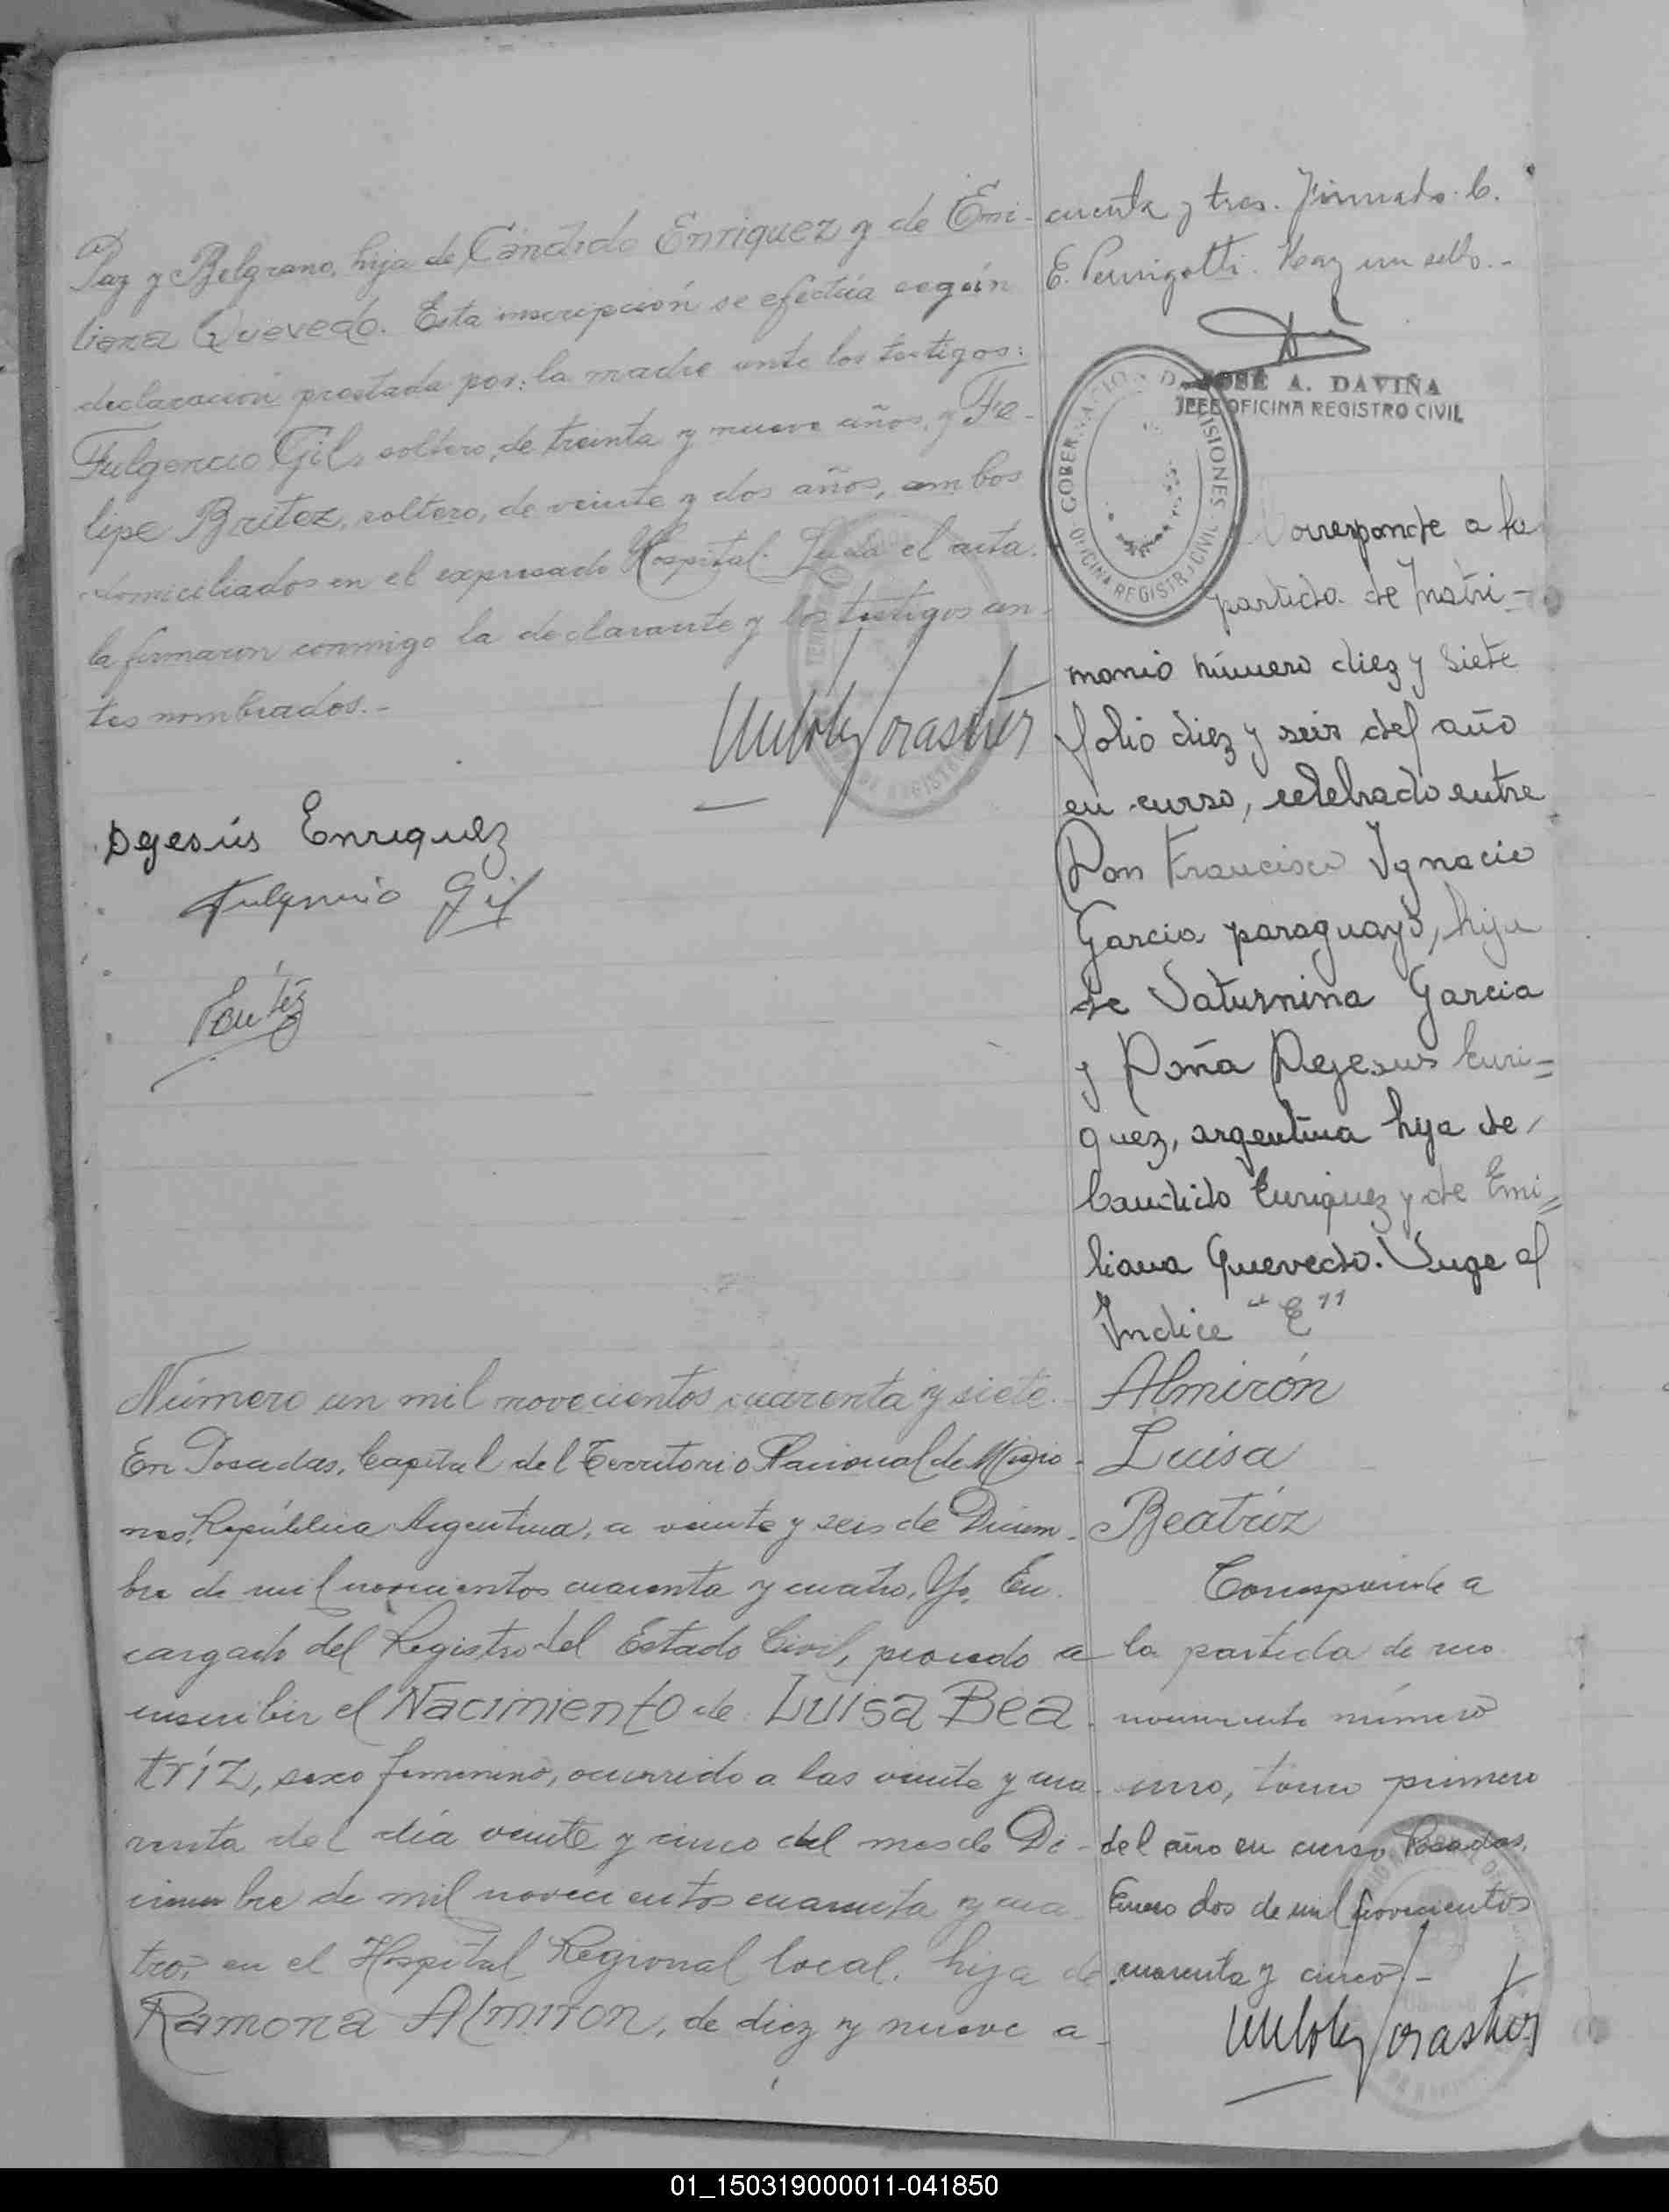 Paz y Belgrano, hija de Cándido Enriquez y de Emi-
liana Quevedo. Esta inscripción se efectúa según
declaración prestada por: la madre ante los testigos:
Fulgencio Gil, soltero, de treinta y nueve años, y Fe-
lipe Britez, soltero, de veinte y dos años, ambos
domiciliados en el expresado Hospital. Leída el acta
la firmaron conmigo la declarante y los testigos an-
tes nombrados.-
Dejesús Enriquez
Fulgencio Gil
cuenta y tres. Firmado: C.
E. Pernigotti. Hay un sello.-
JOSÉ A. DAVIÑA
JEFE OFICINA REGISTRO CIVIL
GOBERNACION DE MISIONES
OFICINA REGISTRO CIVIL
Corresponde a la
partida de Matri-
monio número diez y siete
folio diez y seis del año
en curso, celebrado entre
Don Francisco Ignacio
Garcia paraguayo, hijo
de Saturnina Garcia
y Doña Dejesus Enri-
quez, argentina hija de
Candido Enriquez y de Emi-
liana Quevedo. Surge al
Indice "E"
Número un mil novecientos cuarenta y siete.
En Posadas, Capital del Territorio Nacional de Misio-
nes, República Argentina, a veinte y seis de Diciem-
bre de mil novecientos cuarenta y cuatro, Yo, En-
cargado del Registro del Estado Civil, procedo a
inscribir el Nacimiento de Luisa Bea-
tríz, sexo femenino, ocurrido a las veinte y cua-
renta del día veinte y cinco del mes de Di-
ciembre de mil novecientos cuarenta y cua-
tro, en el Hospital Regional local, hija de
Ramona Almiron, de diez y nueve a-
Almirón
Luisa
Beatríz
Corresponde a
la partida de reco-
nocimiento número
uno, tomo primero
del año en curso Posadas,
Enero dos de mil novecientos
cuarenta y cinco.-
01_150319000011-041850